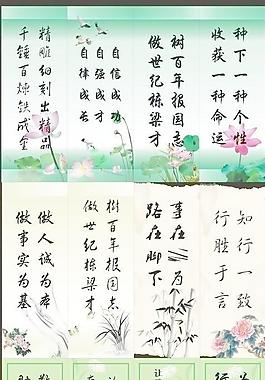 种下一种个性
收获一种命运
树百年报国志
做世纪栋梁才
自信成功
自强成才
自律成长
精雕细刻出精品
千锤百煉铁成金
知行一致
行胜于言
事在人为
路在脚下
树百年报国志
做世纪栋梁才
做人诚为本
做事实为基
让